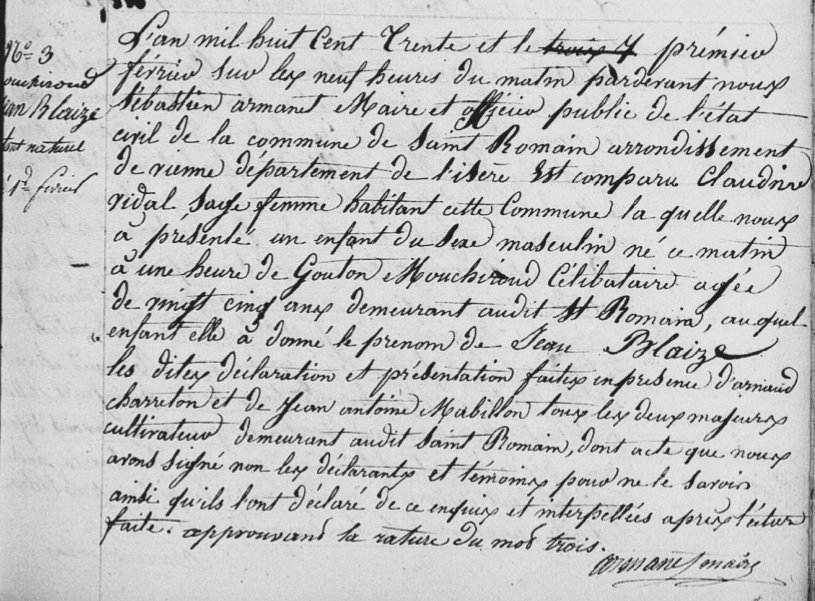 N.º 3
Mouchiroud
Jean Blaize
enfant naturel
né 1.er fevrier
L'an mil huit Cent Trente et le trois f prémier
février sur les neuf heures du matin pardevant nous
Sébastien armanet Maire et officier public de l'état
civil de la commune de Saint Romain arrondissement
de vienne département de l'isère Est comparu Claudine
vidal Sage femme habitant cette Commune la quelle nous
à présenté un enfant du Sexe masculin né ce matin
à une heure de Gouton Mouchiroud Célibataire agée
de vingt cinq ans demeurant audit St Romain, au quel
enfant elle à donné le prenom de Jean Blaize
les dites déclaration et présentation faites en presence d'arnaud
charreton et de Jean antoine Mabillon tous les deux majeurs
cultivateur demeurant audit Saint Romain, dont acte que nous
avons signé non les déclarants et témoins pour ne le savoir
ainsi qu'ils l'ont déclaré de ce enquis et interpellées après lécture
faite. approuvant la rature du mot trois.
armanet maire